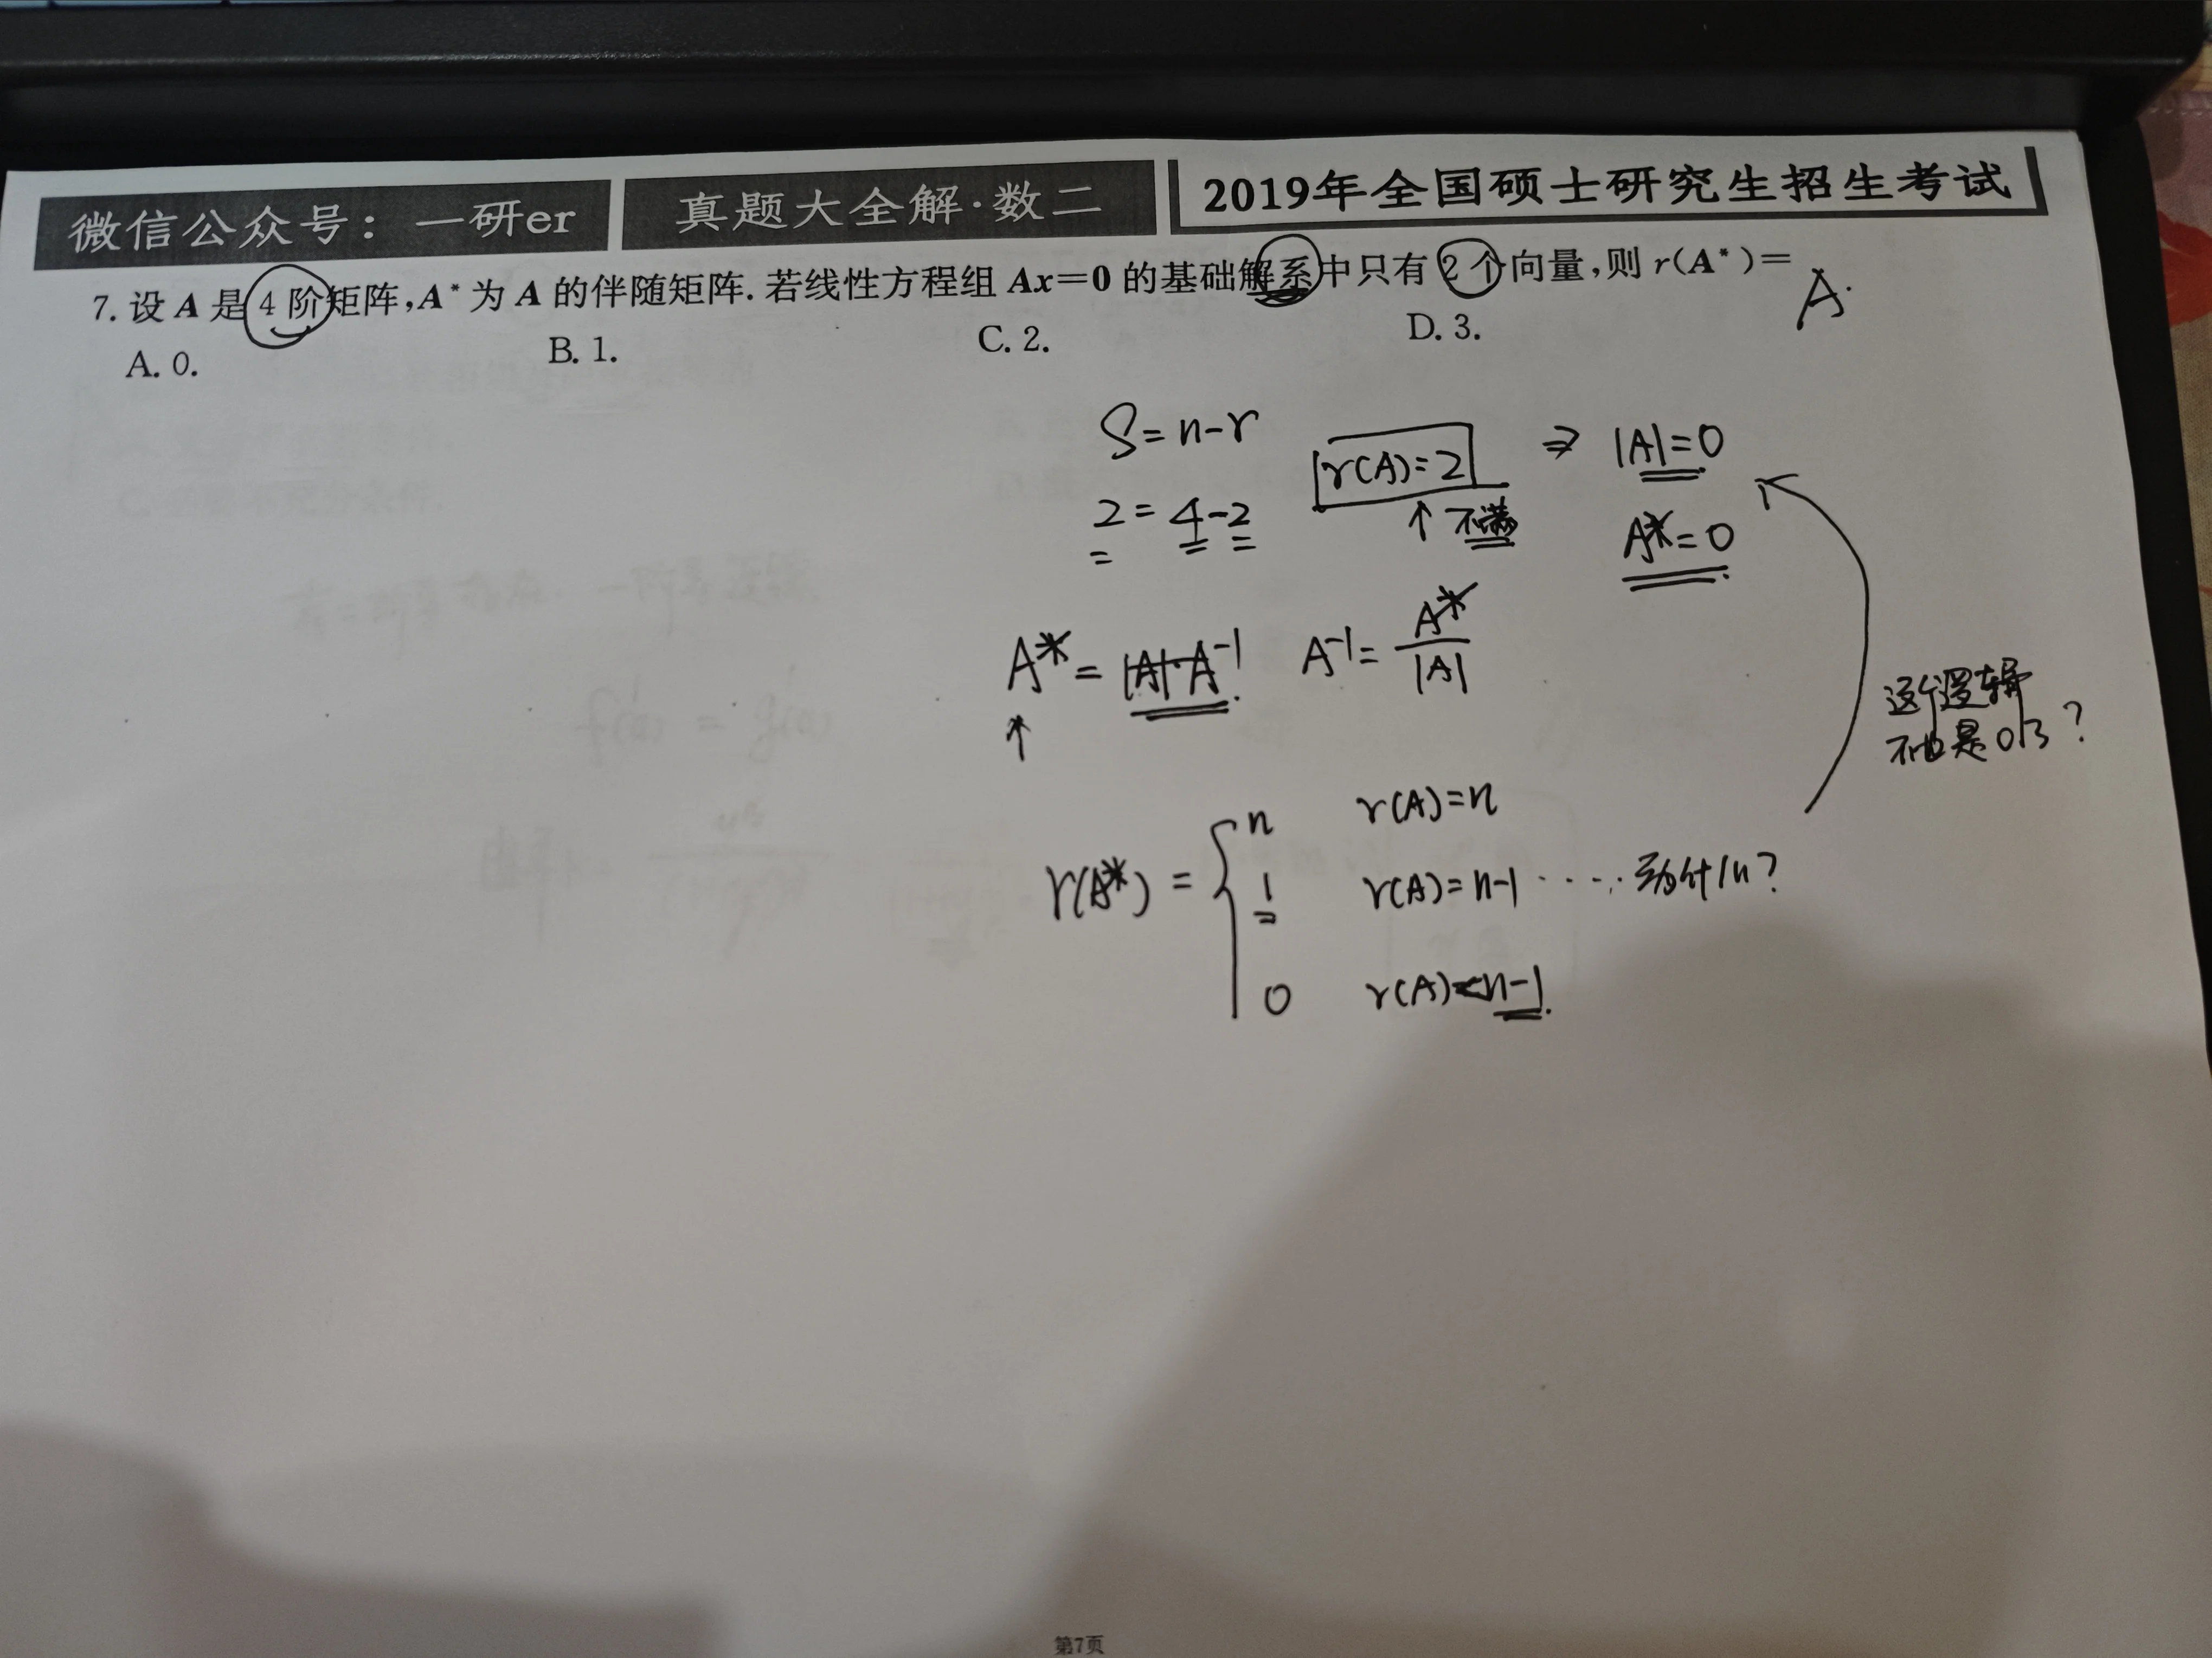 微信公众号：一研er 真题大全解·数二 2019年全国硕士研究生招生考试
7. 设 A 是 4 阶矩阵,A* 为 A 的伴随矩阵. 若线性方程组 Ax=0 的基础解系中只有 2 个向量,则 r(A*)= A.
A. 0. B. 1. C. 2. D. 3.
S=n-r r(A)=2 ⇒ |A|=0
2=4-2 ↑不满 A*=0
A*=|A|·A⁻¹. A⁻¹=A*/|A|
↑
这个逻辑
不也是0了?
r(A*)= { n r(A)=n
1 r(A)=n-1 ····· 为什么?
0 r(A)<n-1.
第7页